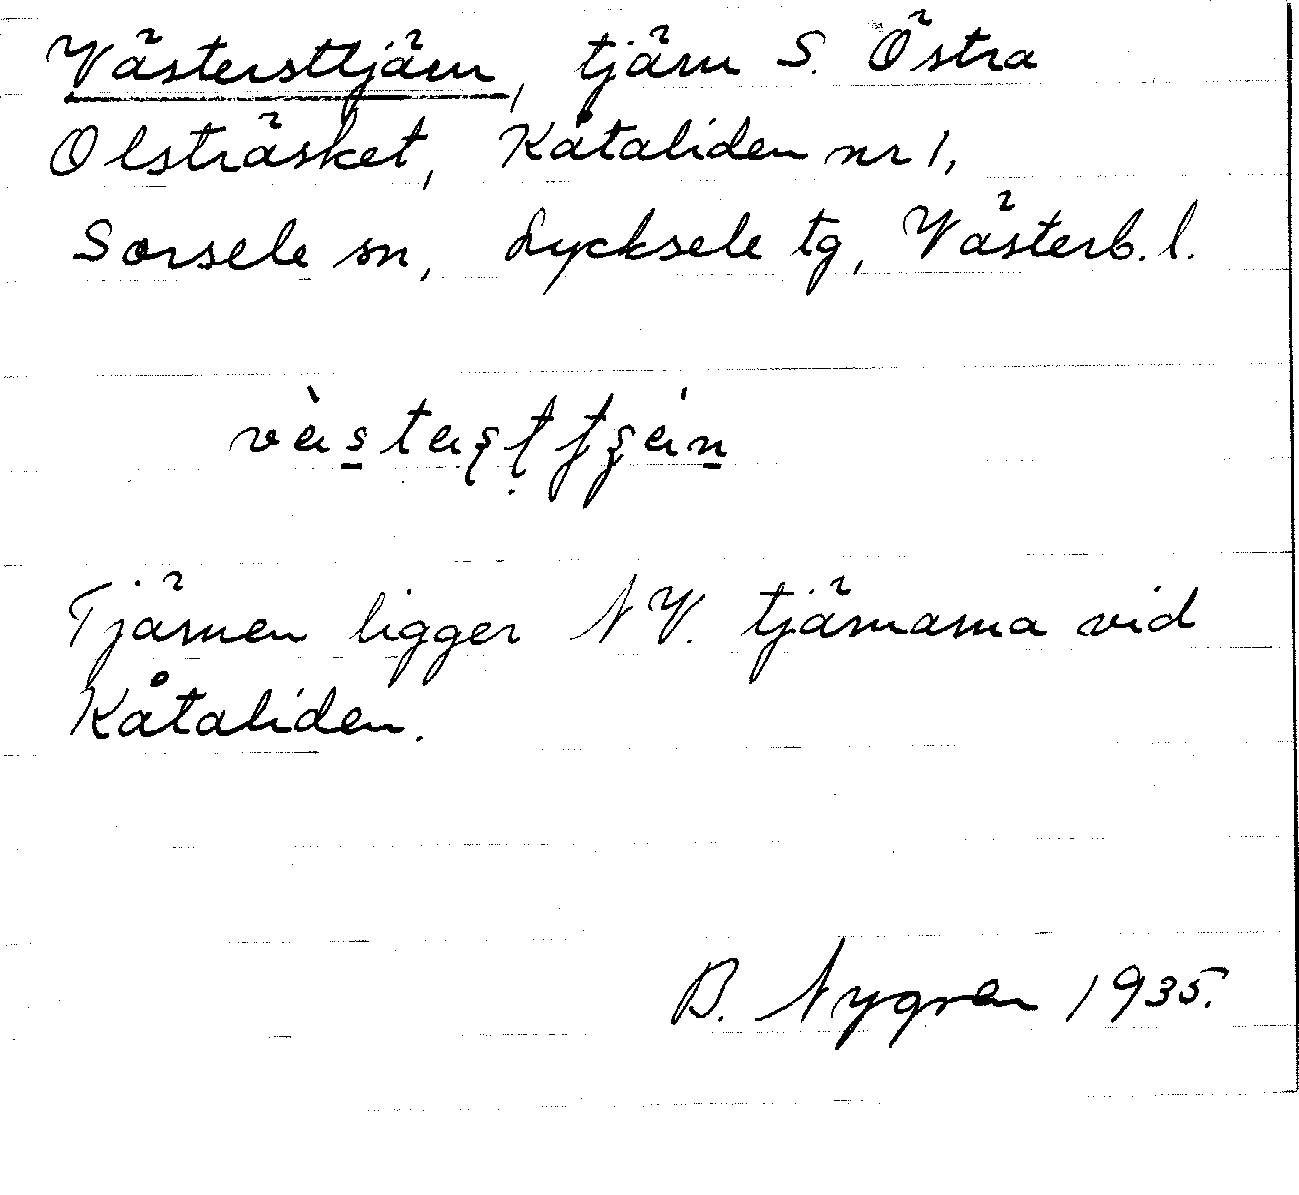 Västersttjärn, tjärn S. Östra
Olsträsket, Kåtaliden nr 1,
Sorsele sn, Lycksele tg, Västerb. l.
Tjärnen ligger NV. tjärnarna vid
Kåtaliden.
B. Nygren 1935.